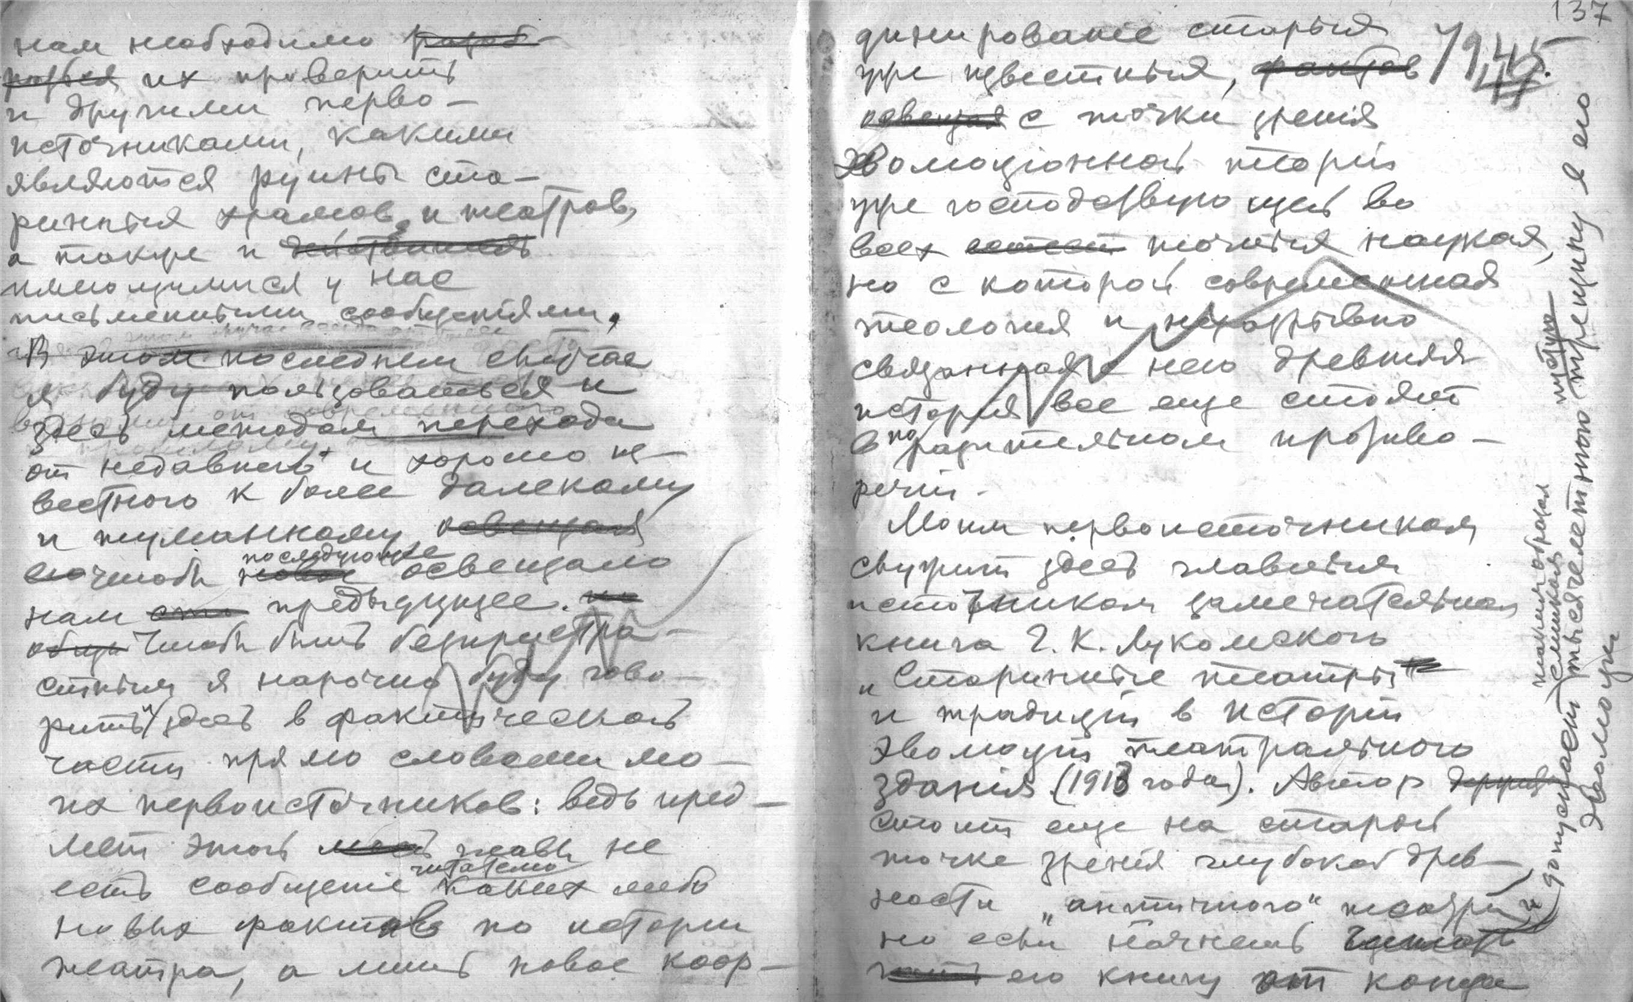 нам необходимо разоб-
раться их проверить
и другими перво-
источниками, какими
являются руины ста-
ринныя храмов и театров,
а также и
имеющимися у нас
письменными сообщеніями.
В этом последнем случае
я буду пользоваться и
здесь методом перехода
от недавняго и хорошо из-
вестного к более далекому
и туманному освещая
чтобы последующее освещало
нам предыдущее.
общ Чтобы быть безпристра-
стным я нарочно буду гово-
рить и здесь в фактической
части прямо словами мо-
их первоисточников: ведь пред-
мет этой главы не
есть сообщеніе читателю каких либо
новых фактов по истории
театра, а лишь новое коор-
137
динированіе старыя
уже известныя, фактов 1945.
освещая с точки зренія
эволюціонной теоріи
уже господствующей во
всех точныя наукая,
но с которой современная
теология и неразрывно
связанная с нею древняя
исторія все еще стоят
в поразительном противо-
речіи.
Моим первоисточникам
служит здесь главныя
источником замечательная
книга Г. К. Лукомского
„Старинные театры“
и традиціи в Исторіи
эволюціи театральнаго
зданія (1913 года). Автор
стоит еще на старой
точке зренія глубокой древ-
ности „античного“ театра
но если начнешь читать
его книгу от конца
и допускает тысячелетнюю трещину в его
эволюціи